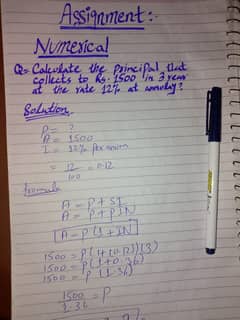 Assignment:-
Numerical
Q= Calculate the principal that
collects to Rs. 1500 in 3 years
at the rate 12% at annualy?
Solution,
P = ?
A = 1500
I = 12% Per annum
= 12/100 = 0.12
formula
A = P + SI
A = P + PIN
A = P (1 + IN)
1500 = P(1+(0.12)(3)
1500 = P(1+0.36)
1500 = P (1.36)
1500/1.36 = P